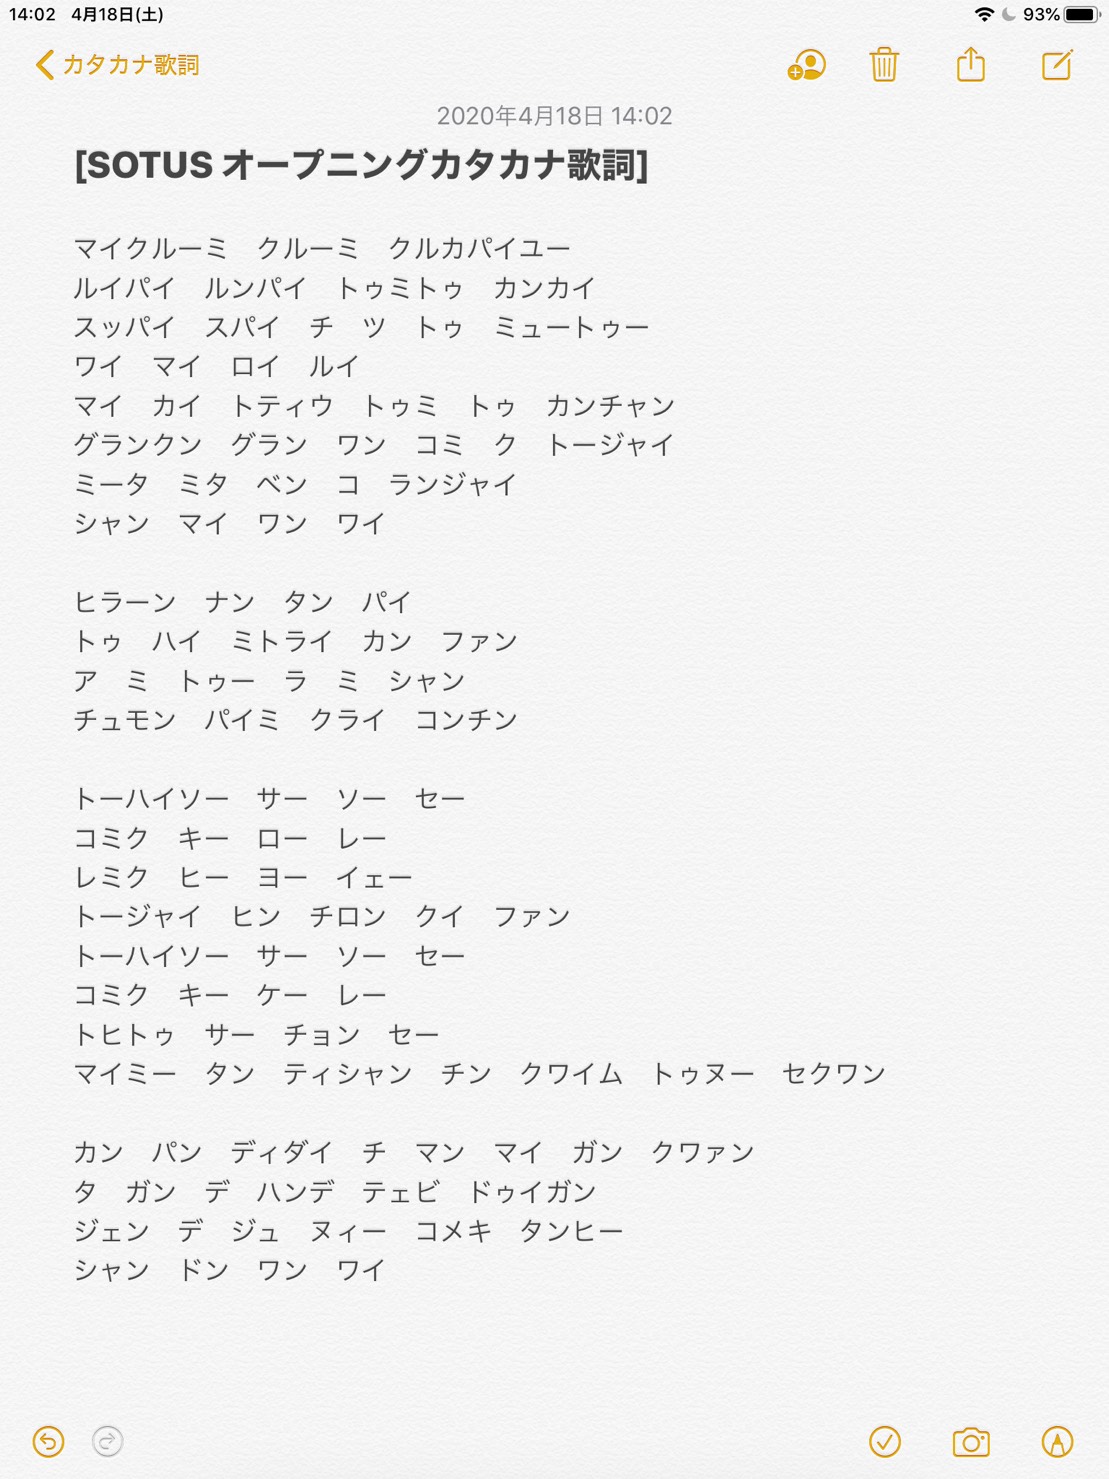 14:02 4月18日(土) 93%
カタカナ歌詞
2020年4月18日 14:02
[SOTUS オープニングカタカナ歌詞]
マイクルーミ　クルーミ　クルカパイユー
ルイパイ　ルンパイ　トゥミトゥ　カンカイ
スッパイ　スパイ　チ　ツ　トゥ　ミュートゥー
ワイ　マイ　ロイ　ルイ
マイ　カイ　トティウ　トゥミ　トゥ　カンチャン
グランクン　グラン　ワン　コミ　ク　トージャイ
ミータ　ミタ　ベン　コ　ランジャイ
シャン　マイ　ワン　ワイ
ヒラーン　ナン　タン　パイ
トゥ　ハイ　ミトライ　カン　ファン
ア　ミ　トゥー　ラ　ミ　シャン
チュモン　パイミ　クライ　コンチン
トーハイソー　サー　ソー　セー
コミク　キー　ロー　レー
レミク　ヒー　ヨー　イェー
トージャイ　ヒン　チロン　クイ　ファン
トーハイソー　サー　ソー　セー
コミク　キー　ケー　レー
トヒトゥ　サー　チョン　セー
マイミー　タン　ティシャン　チン　クワイム　トゥヌー　セクワン
カン　パン　ディダイ　チ　マン　マイ　ガン　クワァン
タ　ガン　デ　ハンデ　テェビ　ドゥイガン
ジェン　デ　ジュ　ヌィー　コメキ　タンヒー
シャン　ドン　ワン　ワイ